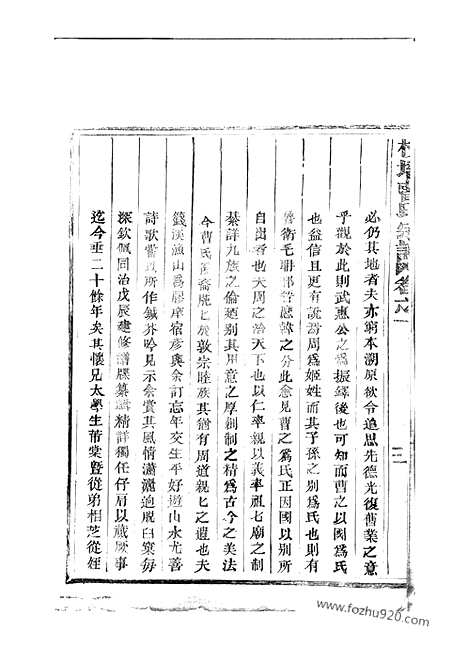 曹氏宗譜 卷之一
必仍其地者夫亦窮本溯原欲令追思先德光復舊業之意
乎觀於此則武惠公之爲振鐸後也可知而曹之以國爲氏
也益信且更有說焉周爲姬姓而其子孫之別爲氏也則有
魯衛毛聃郜 之分此愈見曹之爲氏正因國以別所
自出者也夫周之治天下也以仁率親以義率祖七廟之制
綦詳九族之倫 別其用意之厚創制之精爲古今之美法
今曹氏 裔 七房敦宗睦族其猶有周道親七之遺也夫
溪漁山爲 庠宿彥與余訂忘年交生平好遊山水尤善
詩歌 所作鍼芥吟見示余賞其風情瀟灑迥脫臼窠每
深欽佩同治戊辰建修譜牒纂輯精詳獨任仔肩以蕆厥事
迄今垂二十餘年矣其懷兄太學生芾棠曁從弟相芝從姪
www.fozhu920.com